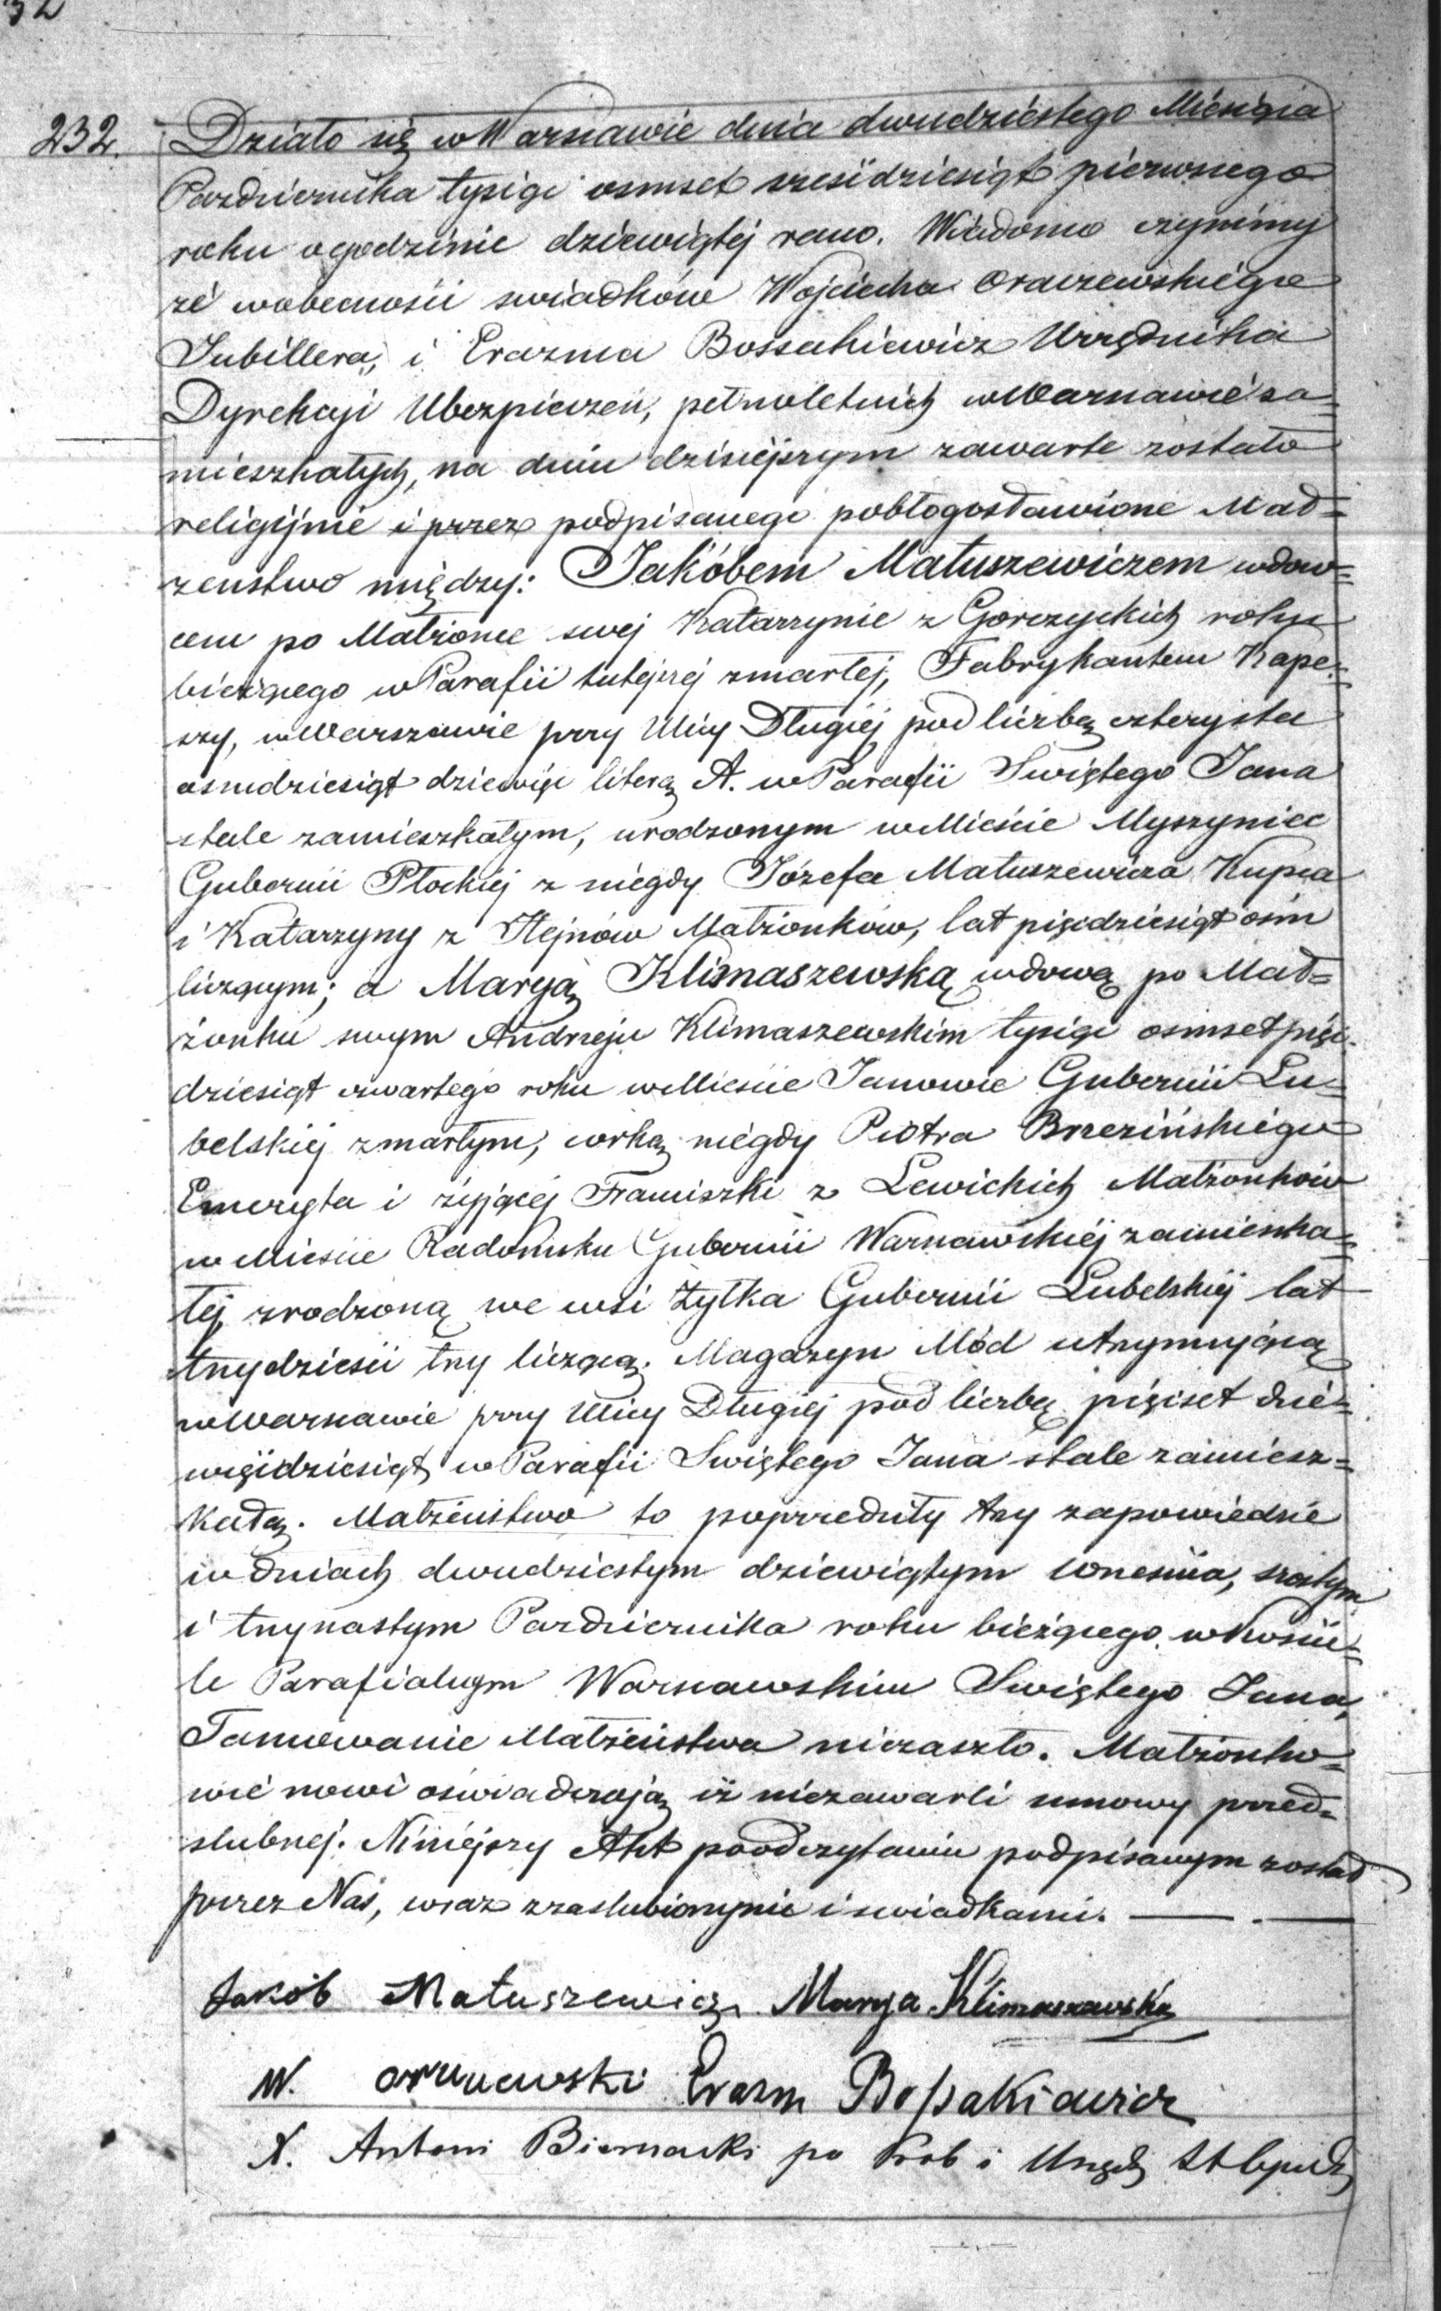 32
232. Działo się w Warszawie dnia dwudziestego Miesiąca
Pazdziernika tysiąc osmset szesćdziesiąt pierwszego
roku o godzinie dziewiątej rano. Wiadomo czynimy
że w obecności swiadków Wojciecha Oraczewskiego
Jubillera, i Erazma Bossakiewicz Urzędnika
Dyrekcyi Ubezpieczeń, pełnoletnich w Warszawie za=
mieszkałych, na dniu dzisiejszym zawarte zostało
religijnie i przez podpisanego pobłogosławione Mał=
żenstwo między: Jakóbem Matuszewiczem wdow=
cem po Małżonce swej Katarzynie z Gorczyckich roku
bieżącego w Parafii tutejszej zmarłej, Fabrykantem Kape=
szy, w Warszawie przy Ulicy Długiéj pod liczbą czterysta
osmdziesiąt dziewięć literą A. w Parafii Swiętego Jana
stale zamieszkałym, urodzonym w Mieście Myszyniec
Gubernii Płockiéj z niegdy Józefa Matuszewicza Kupca
i Katarzyny z Hejnów Małżonków, lat pięćdziesiąt ośm
liczącym; a Maryą Klimaszewską wdową po Mał=
żonku swym Andrzeju Klimaszewskim tysiąc osmset pięć=
dziesiąt czwartego roku w Mieście Janowie Gubernii Lu=
belskiéj zmarłym, córką niegdy Piotra Brzezińskiego
Emeryta i żyjącéj Franciszki z Lewickich Małżonków
w Mieście Radomsku Gubernii Warszawskiéj zamieszka=
łej, zrodzoną we wsi Żyłka Gubernii Lubelskiej lat
trzydzieści trzy liczącą. Magazyn Mód utrzymującą
w Warszawie przy Ulicy Długiej pod liczbą pięćset dzie=
więćdziesiąt w Parafii Swiętego Jana stale zamiesz=
kałą. Małżeństwo to poprzedziły trzy zapowiedzie
w dniach dwudziestym dziewiątym Września, szostym
i trzynastym Pazdziernika roku bieżącego w Koście=
le Parafialnym Warszawskim Swiętego Jana,
Tamowanie Małżeństwa niezaszło. Małżonko=
wie nowi oświadczają iż niezawarli umowy przed=
slubnej. Niniejszy Akt po odczytaniu podpisanym został
przez Nas, wraz z zaslubionymi i swiadkami.
Jakób Matuszewicz Marya Klimaszewska
W. Oraczewski Erazm Bossakiewicz
X. Antoni Biernacki po Prob i Urzęd